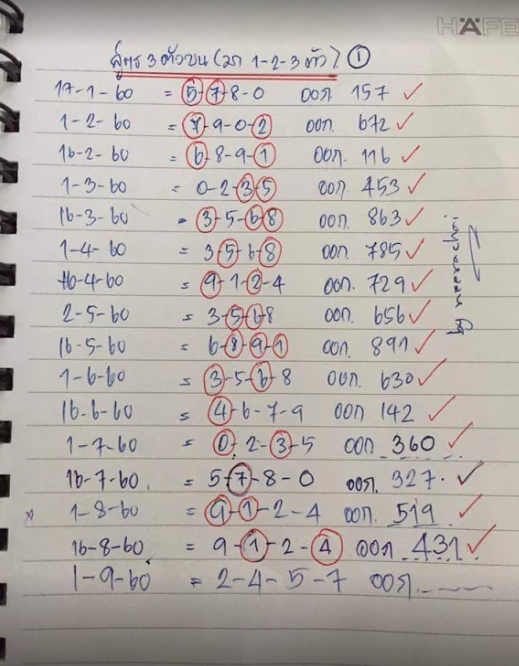 HÄFE
สูตร 3 ตัวบน (รูด 1-2-3 ตัว) ①
17-1-60 = 5-7-8-0 ออก 157 ✓
1-2-60 = 7-9-0-2 ออก 672 ✓
16-2-60 = 6-8-9-1 ออก. 116 ✓
1-3-60 = 0-2-3-5 ออก. 453 ✓
16-3-60 = 3-5-6-8 ออก. 863 ✓
1-4-60 = 3-5-6-8 ออก. 785 ✓
16-4-60 = 9-1-2-4 ออก. 729 ✓
2-5-60 = 3-5-6-8 ออก. 656 ✓
16-5-60 = 6-8-9-1 ออก. 891 ✓
1-6-60 = 3-5-6-8 ออก. 630 ✓
16-6-60 = 4-6-7-9 ออก 142 ✓
1-7-60 = 0-2-3-5 ออก 360 ✓
16-7-60. = 5-7-8-0 ออก. 327. ✓
x 1-8-60 = 9-1-2-4 ออก. 519 ✓
16-8-60 = 9-1-2-4 ออก 431 ✓
1-9-60 = 2-4-5-7 ออก.